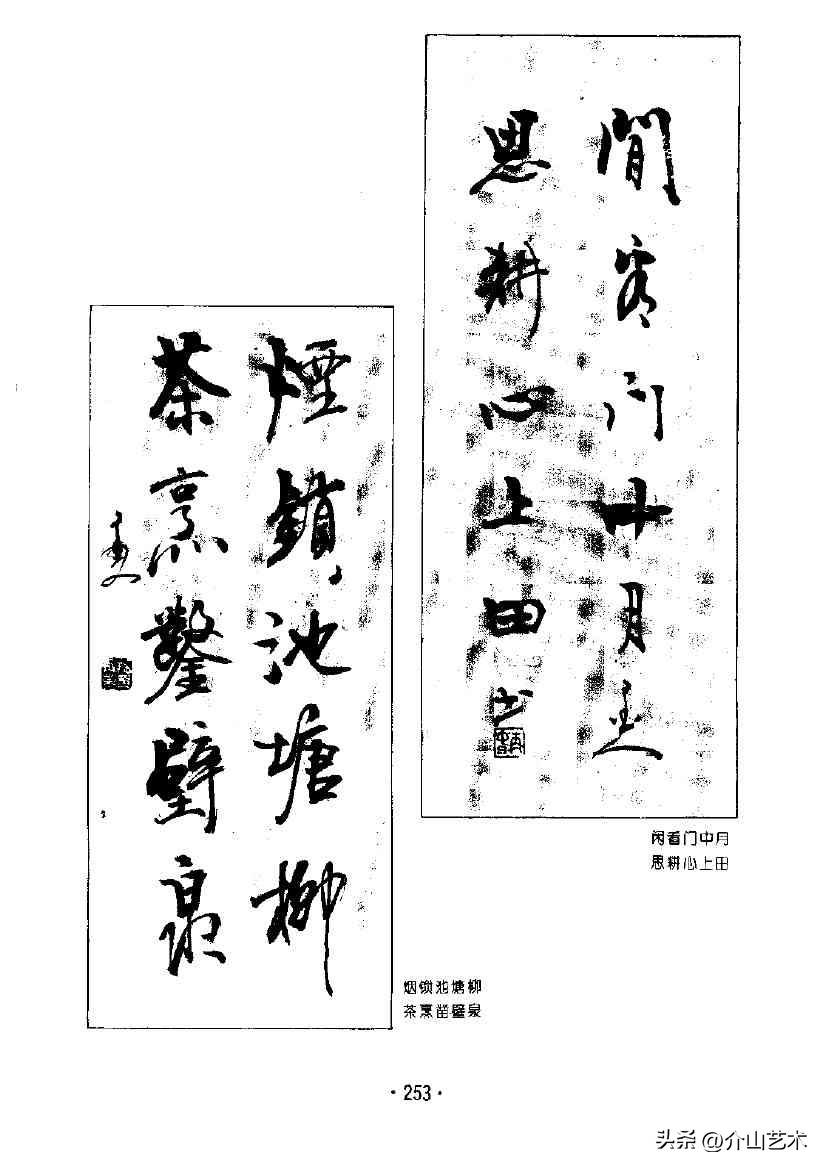 閒看门中月
思耕心上田
书
闲看门中月
思耕心上田
煙鎖池塘柳
茶烹鑿壁泉
烟锁池塘柳
茶烹凿壁泉
·253·
头条 @介山艺术